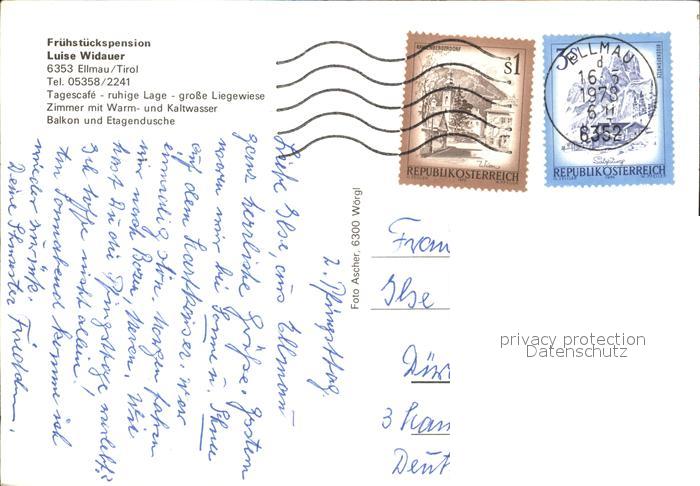 Frühstückspension
Luise Widauer
6353 Ellmau/Tirol
Tel. 05358/2241
Tagescafé - ruhige Lage - große Liegewiese
Zimmer mit Warm- und Kaltwasser
Balkon und Etagendusche
S1
REPUBLIK ÖSTERREICH
REPUBLIK ÖSTERREICH
ELLMAU
16.5
1978
6352
Foto Ascher, 6300 Wörgl
2. Pfingsttag.
Liebe Else, aus Ellmau
ganz herzliche Grüße. Gestern
waren wir bei Sonne u. Schnee
auf dem Hartkaiser, war
einmalig schön. Morgen fahren
wir nach Bozen, Meran. Wie
hast Du die Pfingsttage verlebt?
Ich hoffe nicht allein!
Am Sonnabend komme ich
wieder zurück.
Deine Schwester Friedchen.
Frau
Else
3 Han
Deut
privacy protection
Datenschutz